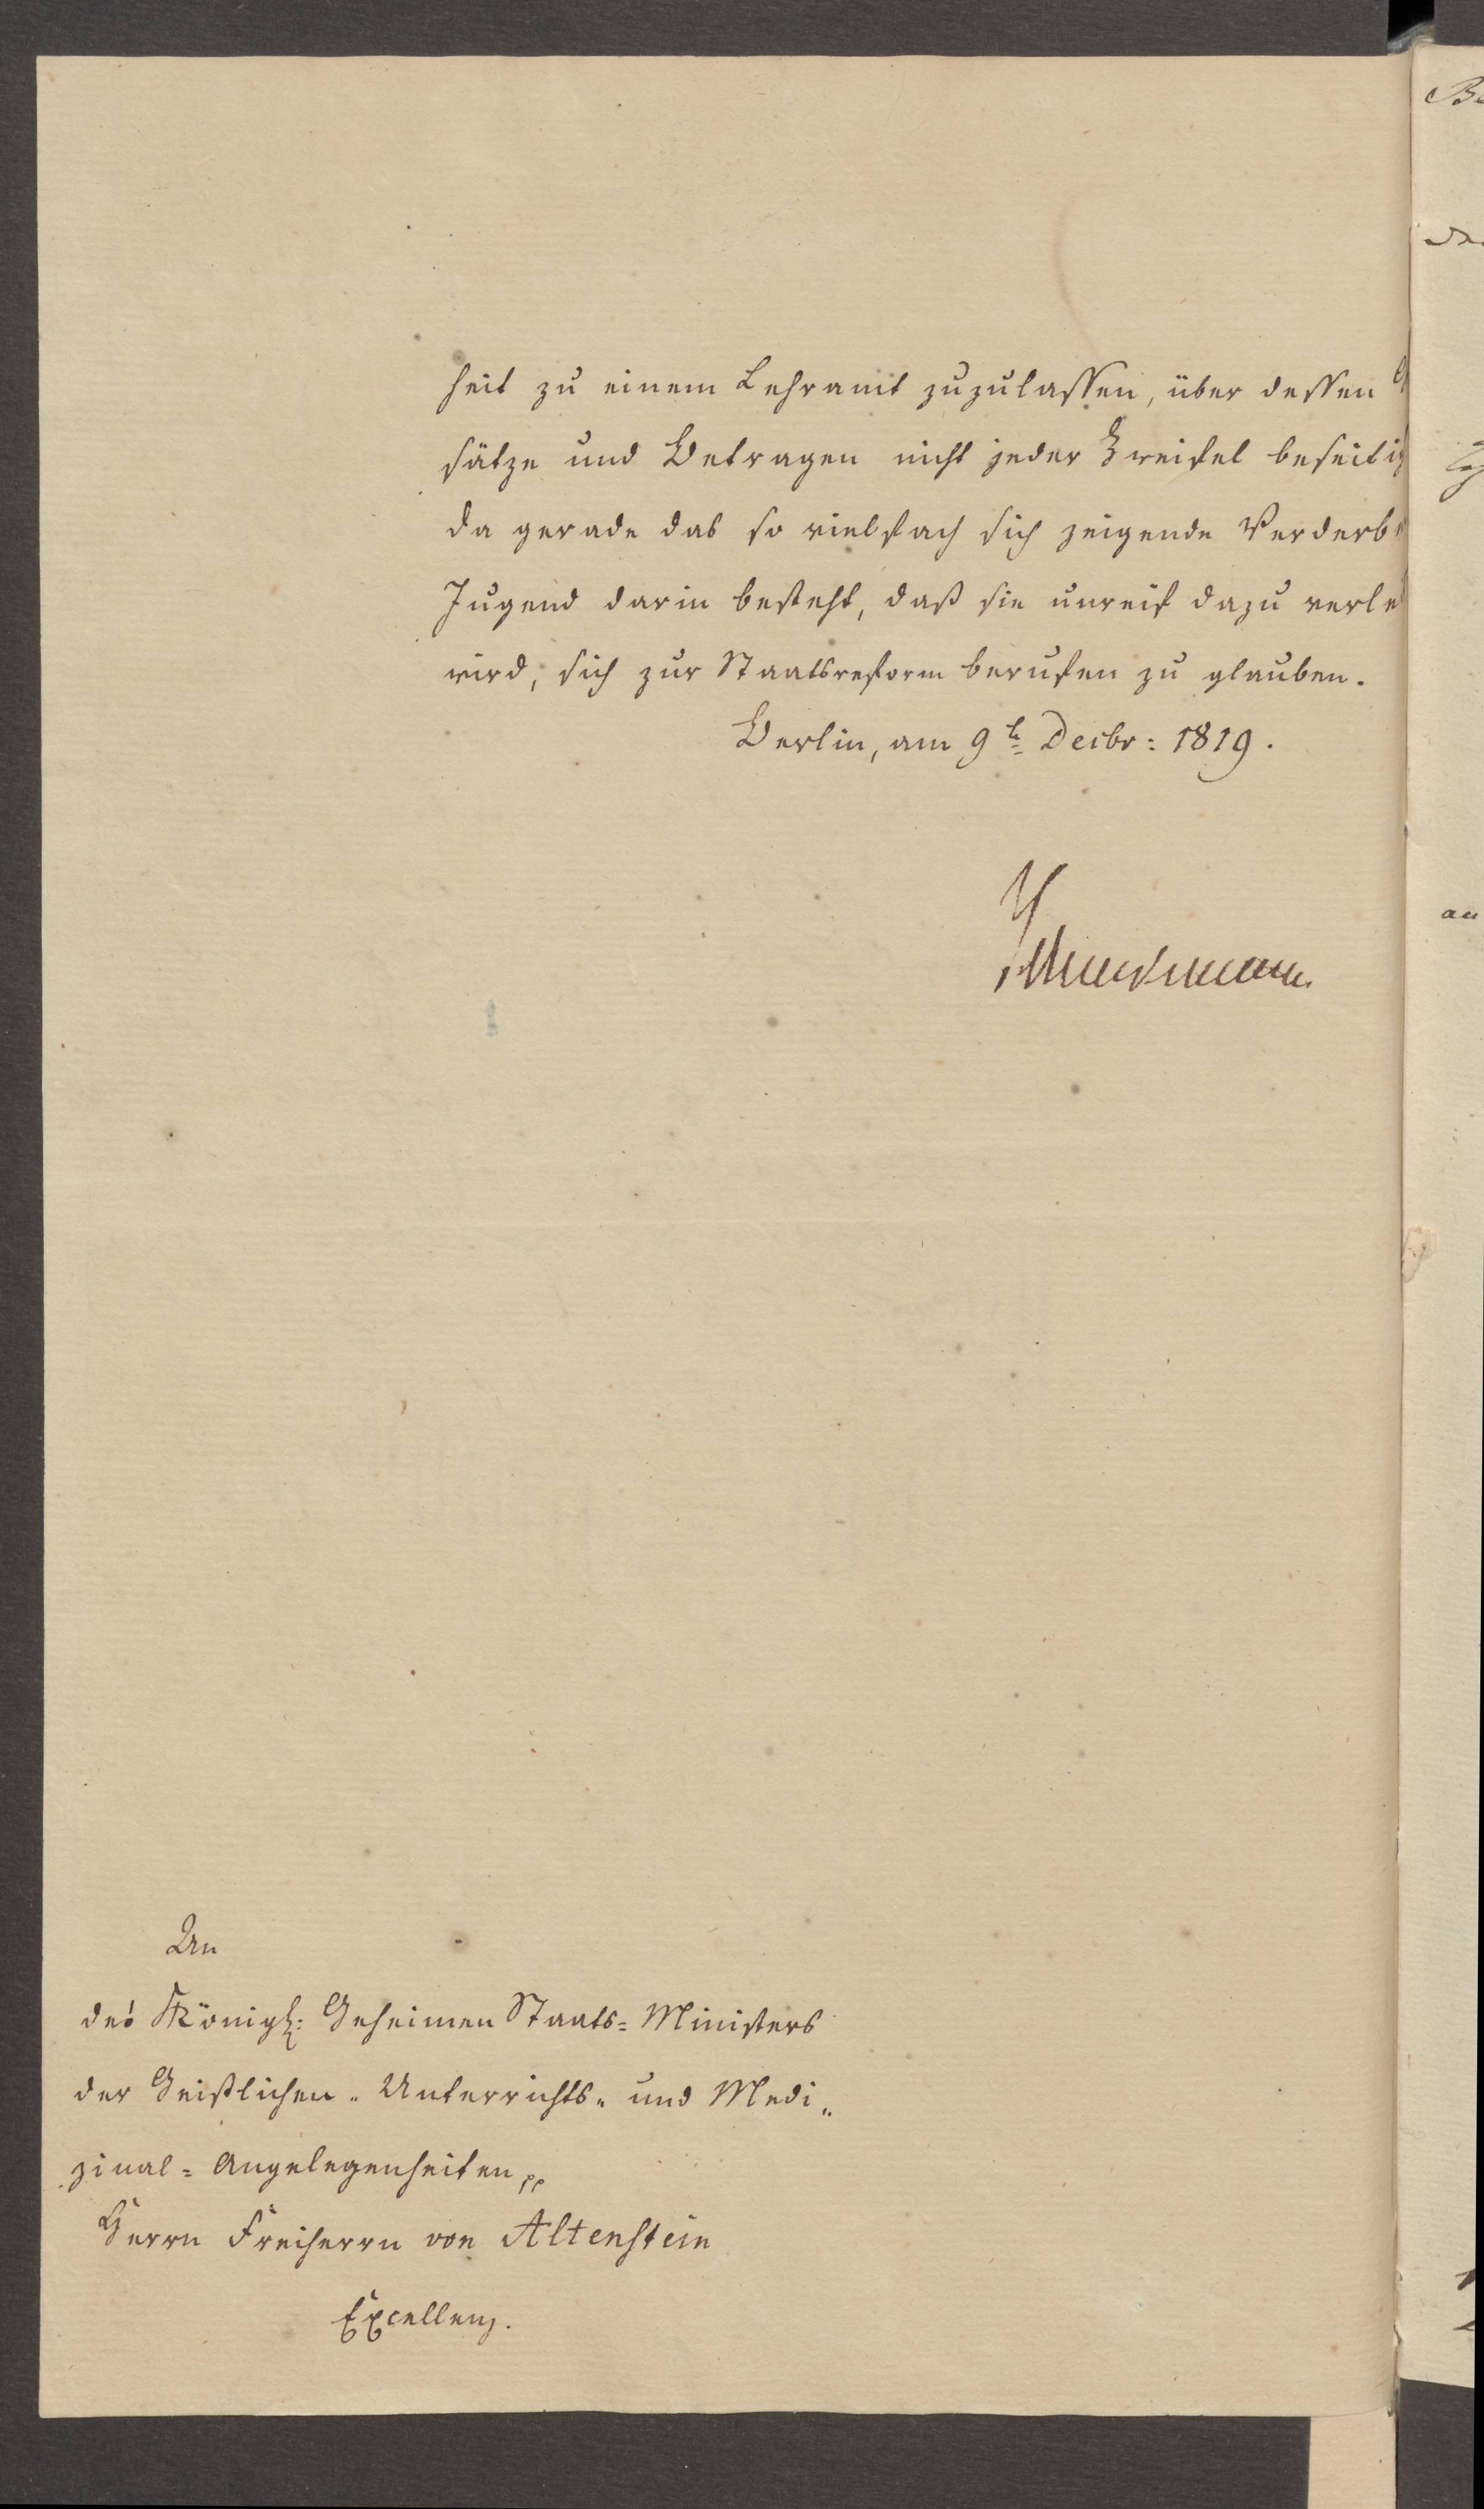 heit zu einem Lehramt zuzulassen, über dessen G
sätze und Betragen nicht jeder Zweifel beseitig
da gerade das so vielfach sich zeigende Verderb
Jugend darin besteht, daß sie unreif dazu verle
wird, sich zur Staatsreform berufen zu glauben.
Berlin, am 9t Decbr: 1819.
Schuckmann
An
des Königl: Geheimen Staats= Ministers
der Geistlichen- Unterrichts- und Medi-
zinal= Angelegenheiten pp
Herrn Freiherrn von Altenstein
Excellenz.